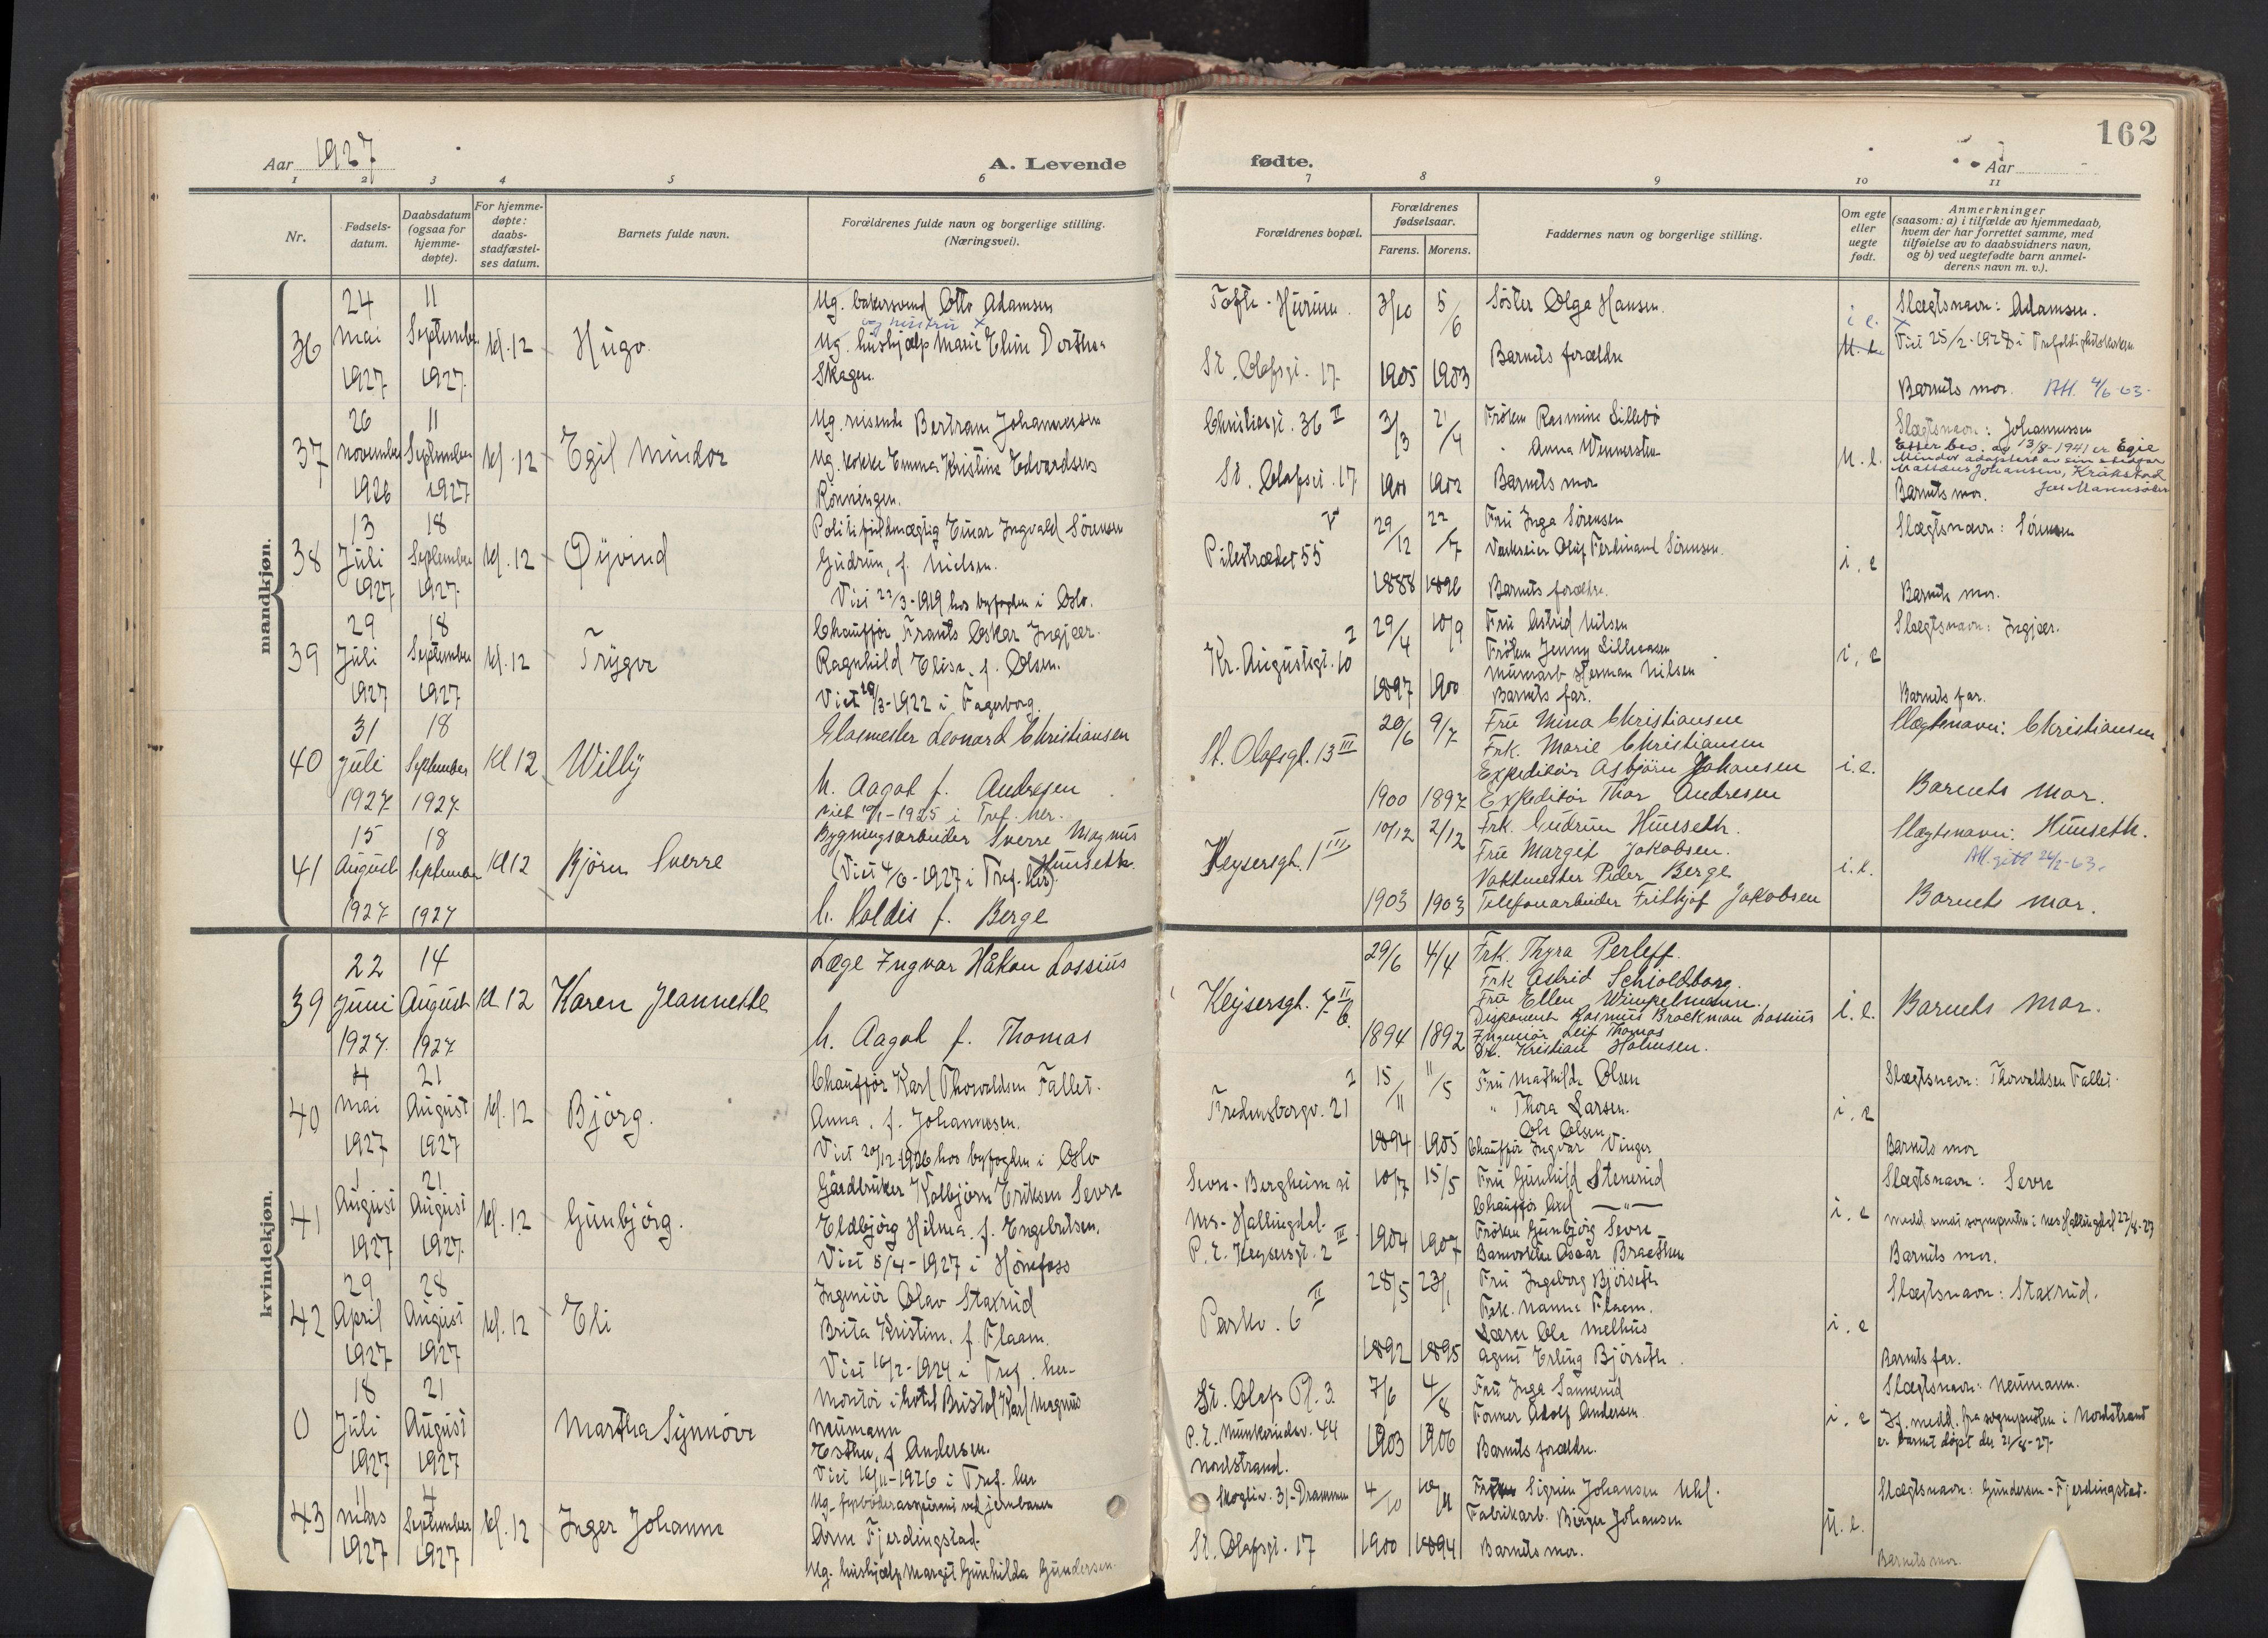 162
Aar 1927
A. Levende
fødte.
Aar
1 2 3 4 5 6 7 8 9 10 11
Nr.
Fødsels-
datum.
Daabsdatum
(ogsaa for
hjemme-
døpte).
For hjemme-
døpte:
daabs-
stadfæstel-
ses datum.
Barnets fulde navn.
Forældrenes fulde navn og borgerlige stilling.
(Næringsvei).
Forældrenes bopæl.
Forældrenes
fødselsaar.
Farens. Morens.
Faddernes navn og borgerlige stilling.
Om egte
eller
uegte
født.
Anmerkninger
(saasom: a) i tilfælde av hjemmedaab,
hvem der har forrettet samme, med
tilføielse av to daabsvidners navn,
og b) ved uegtefødte barn anmel-
derens navn m. v.).
mandkjøn.
36
24
mai
1927
11
September
1927
kl. 12
Hugo.
Ug. bakersvend Otto Adamsen
og hustru x
Ug. hushjælp Marie Eline Dorthea
Skagen.
Tofte - Hurum.
St. Olafsgt. 17
3/10 1905
5/6 1903
Søster Olga Hansen.
Barnets forældre
i e.
U. e.
Slægtsnavn: Adamsen.
x Viet 25/2-1928 i Trefoldighetskirken
Barnets mor. Att. 4/6-63.
37
26
november
1926
11
September
1927
kl. 12
Egil Mindor
Ug. reisende Bertram Johannessen
Ug. kokke Emma Kristine Edvardsens
Rønningen.
Christiesgt. 36 II
St. Olafsgt. 17
3/3 1900
2/4 1902
Frøken Rasmine Sillebø
" Anna Wennersten
Barnets mor
U. e.
Slægtsnavn: Johannessen
Etter bev. av 13/8-1941 er Egil
Mindor adoptert av sin stefar
Massæus Johansen, Kråkstad
Barnets mor.
38
13
Juli
1927
18
September
1927
kl. 12
Øyvind
Politifuldmægtig Einar Ingvald Sørensen
Gudrun, f. Nielsen.
Viet 22/3-1919 hos byfogden i Oslo.
Pilestrædet 55 V
29/12 1888
22/7 1896
Fru Inga Sørensen
Verkseier Oluf Ferdinand Sørensen.
Barnets forældre.
i. e
Slægtsnavn: Sørensen
Barnets mor.
39
29
Juli
1927
18
September
1927
kl. 12
Trygve
Chauffør Frants Oskar Ingjær.
Ragnhild Elise, f. Olsen.
Viet 29/3-1922 i Fagerborg.
Kr. Augustsgt. 10 2
29/4 1897
10/9 1900
Fru Astrid Nilsen
Frøken Jenny Lillhaasen
Murerarb Herman Nilsen
Barnets far.
i. e
Slægtsnavn: Ingjær.
Barnets far.
40
31
Juli
1927
18
September
1927
Kl 12
Willy
Glasmester Leonard Christiansen
h. Aagot f. Andresen
viet 10/1-1925 i Tref. her.
St. Olafsgt. 13 III
20/6 1900
9/7 1897
Fru Mina Christiansen
Frk. Marie Christiansen
Expeditør Asbjørn Johansen
Expeditør Thor Andresen
i. e.
Slægtsnavn: Christiansen
Barnets mor.
41
15
August
1927
18
September
1927
Kl 12
Bjørn Sverre
Bygningsarbeider Sverre Magnus
Hunseth.
(Viet 4/6-1927 i Tref. her).
h. Haldis f. Berge
Keysersgt. 1 III
10/12 1903
2/12 1903
Frk. Gudrun Hunseth.
Fru Margit Jakobsen.
Vaktmester Peder Berge
Telefonarbeider Frithjof Jakobsen
i. e.
Slægtsnavn: Hunseth.
Barnets mor.
kvindekjøn.
39
22
Juni
1927.
14
August
1927
Kl 12
Karen Jeannette
Læge Ingvar Håkon Lossius
h. Aagot f. Thomas
Keysersgt. 7 b. II
29/6 1894
4/4 1892
Frk. Thyra Perleff.
Frk Astrid Schioldborg.
Fru Ellen Wimpelmann.
Disponent Rasmus Brockman Lossius
Ingeniør Leif Thomas
Dr. Kristian Holmsen.
i. e.
Barnets mor.
40
4
mai
1927
21
August
1927
kl. 12
Bjørg.
Chauffør Karl Thorvaldsen Fallet.
Anna. f. Johannesen.
Viet 20/12-1926 hos byfogden i Oslo
Fredensborgv. 21 2
15/11 1894
11/5 1905
Fru Mathilde Olsen
" Thora Larsen.
Ole Olsen
Chauffør Ingvar Vinger
i. e
Slægtsnavn: Thorvaldsen Fallet.
Barnets mor
41
1
August
1927
21
August
1927.
kl. 12
Gunbjørg.
Gårdbruker Kolbjørn Eriksen Sevre
Eldbjørg Hilma. f. Engebretsen.
Viet 5/4-1927 i Hønefoss
Sevre - Bergheim st
Nes - Hallingdal.
P. t. Keysersgt. 2 III
10/7 1904
15/5 1907
Fru Gunhild Stenerud
Chauffør Axel —"—
Frøken Gunbjørg Sevre
Banvokter Oscar Braathen
i. e
Slægtsnavn: Sevre
medd. sendt sognepresten i Nes Hallingdal 22/8-27
Barnets mor.
42
29
April
1927
28
August
1927
kl. 12
Eli
Ingeniør Olav Staxrud
Brita Kristine, f. Flaam.
Viet 16/2-1924 i Tref. her
Parkv. 6 II
28/5 1892
23/1 1895
Fru Ingeborg Bjørseth
Frk. Nanna Flaam.
Lærer Ole Melhus
Agent Erling Bjørseth.
i. e
Slægtsnavn: Staxrud.
Barnets far.
0
18
Juli
1927
21
August
1927
Martha Synnøve
Montør i hotel Bristol Karl Magnus
Neumann
Esther, f. Andersen.
Viet 16/11-1926 i Tref. her
St. Olafs Pl. 3.
P. t. Munkerudv. 44
Nordstrand.
7/6 1903
4/8 1906
Fru Inga Sannerud
Former Adolf Andersen
Barnets forældre.
i. e
Slægtsnavn: Neumann.
Jf. medd. fra sognepresten i Nordstrand
er barnet døpt der 21/8-27.
43
11
mars
1927
4
September
1927
kl. 12
Inger Johanne
Ug. fyrbøderaspirant ved jernbanen
Arne Fjerdingstad.
Ug. hushjælp Margit Gunhilda Gundersen
Skogliv. 31-Drammen
St. Olafsgt. 17
4/10 1900
10/11 1894
Sigrun Johansen Uhl.
Fabrikarb. Birger Johansen
Barnets mor.
U. e.
Slægtsnavn: Gundersen - Fjerdingstad.
Barnets mor.